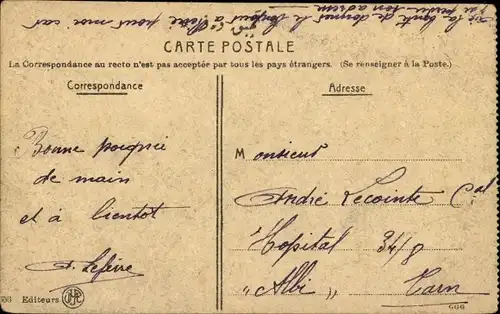 CARTE POSTALE
La Correspondance au recto n'est pas acceptée par tous les pays étrangers. (Se renseigner à la Poste.)
Correspondance
Adresse
Bonne poignée
de main
et à bientôt
A. Lefèvre
Monsieur
André Lecointe Cal
Hopital 34/8
"Albi" Tarn
Editeurs